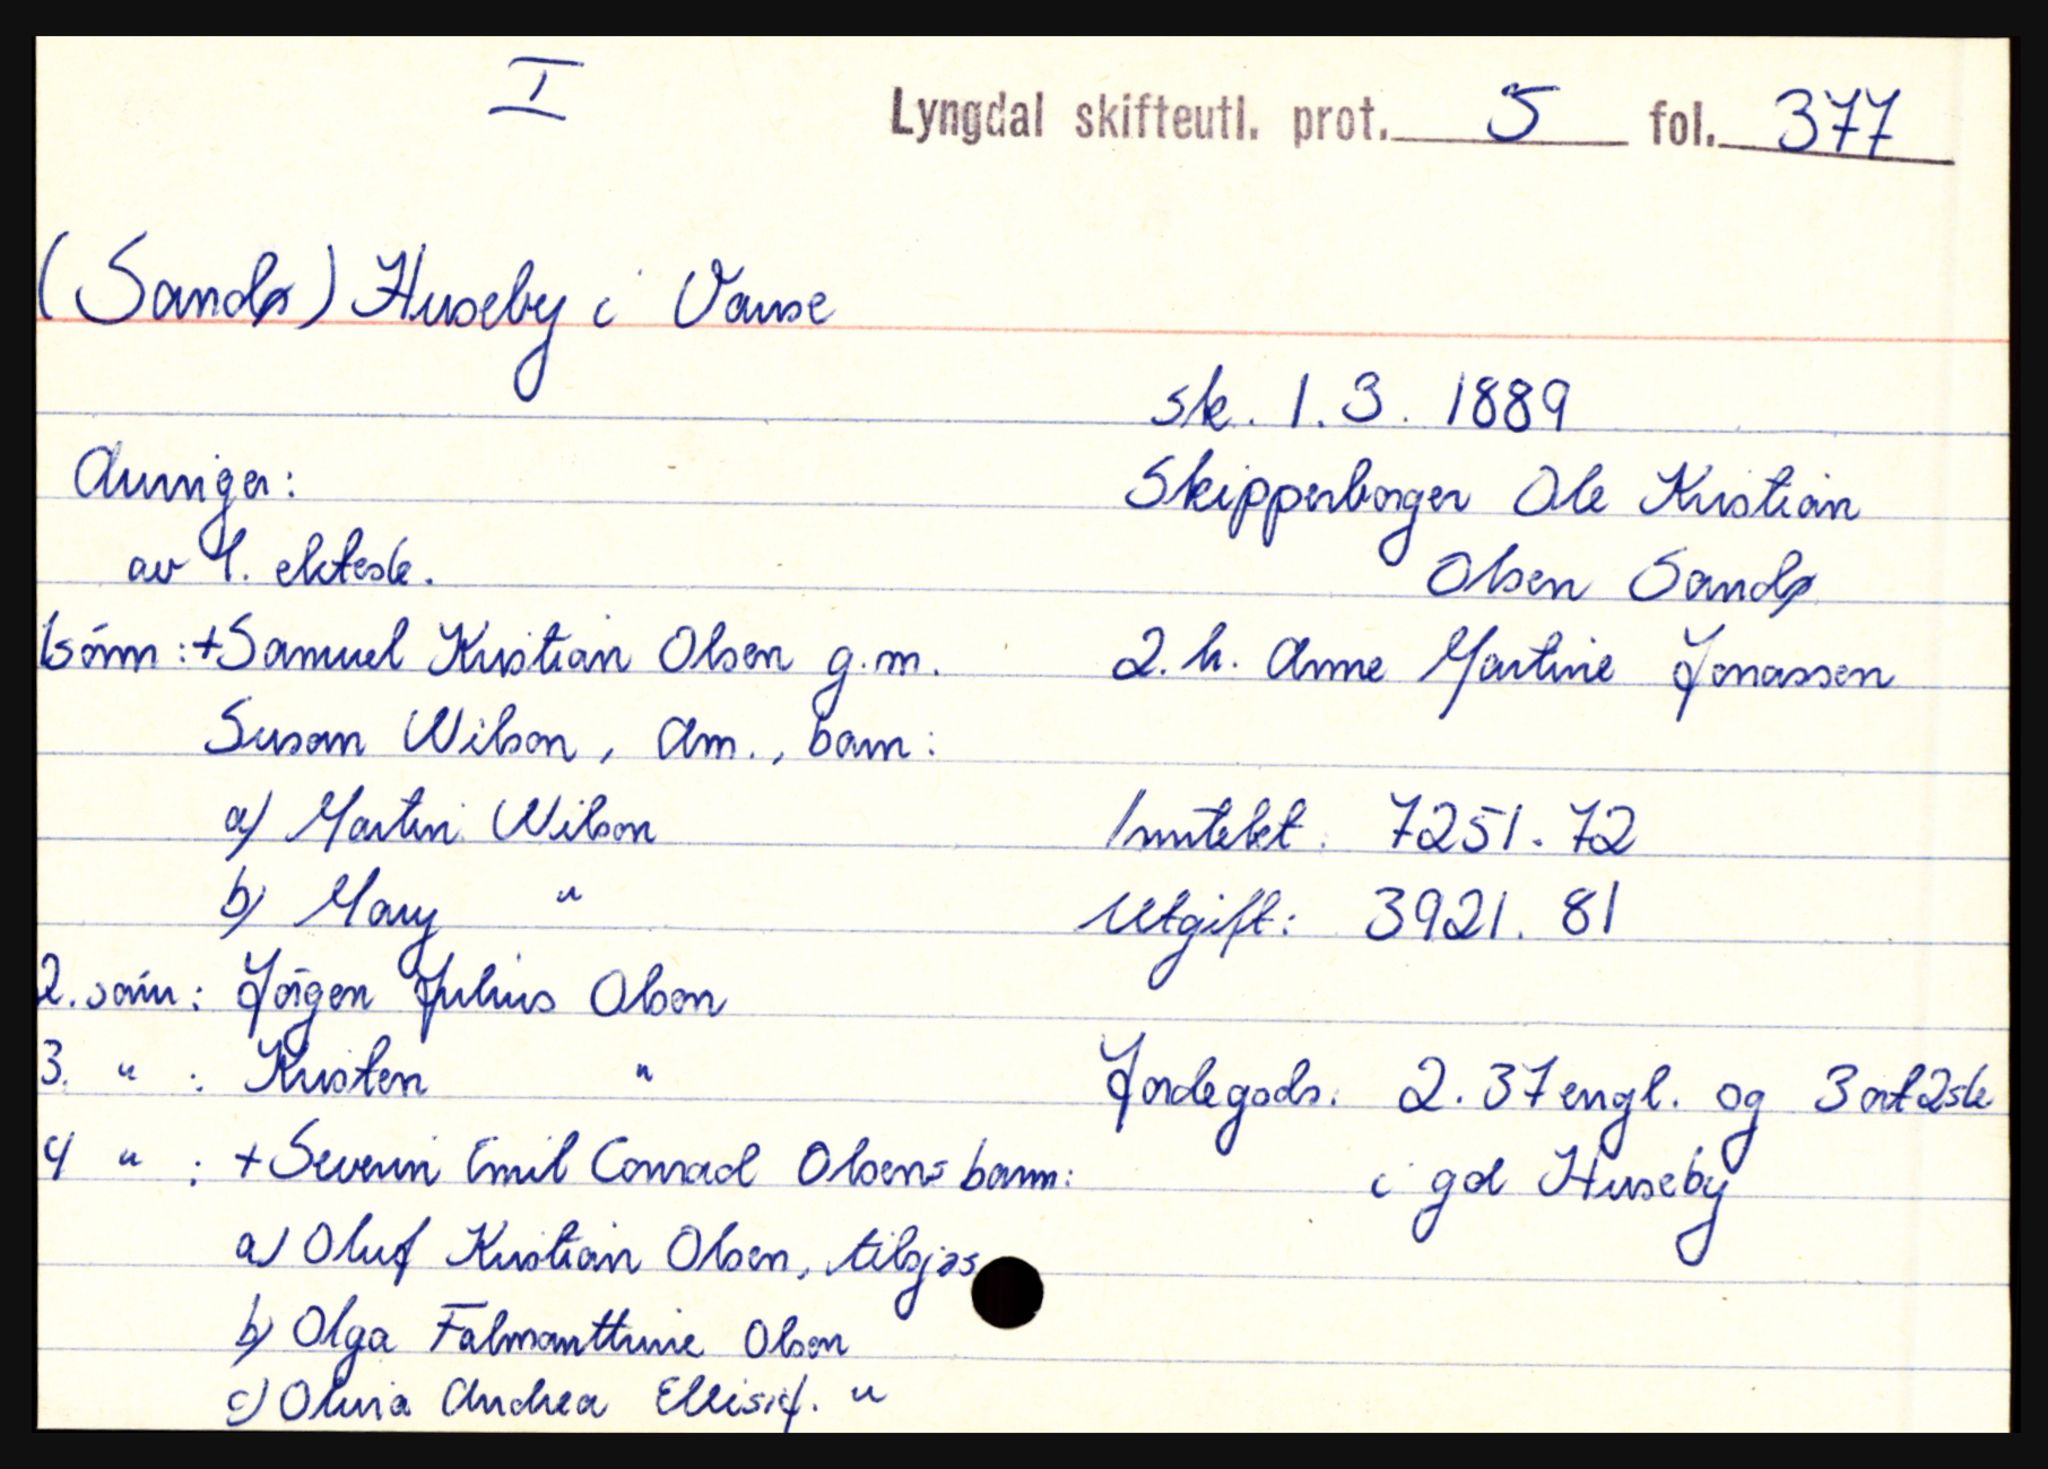 I
Lyngdal skifteutl. prot. 5 fol. 377
(Sandø) Huseby i Vanse
sk. 1.3. 1889
Skipperborger Ole Kristian
Olsen Sandø
2. h. Anne Martine Jonassen
Inntekt: 7251.72
Utgift: 3921.81
Jordegods: 2.37 engl. og 3 ort 2 sk
i gd Huseby
Arvinger:
av 1. ektesk.
1 sönn: + Samuel Kristian Olsen g.m.
Susan Wilson, Am., barn:
a) Martin Wilson
b) Mary "
2. sönn: Jörgen Julius Olsen
3. " : Kristen "
4 " : + Severin Emil Conrad Olsens barn:
a) Oluf Kristian Olsen, tilsjøs
b) Olga Falmanttine Olsen
c) Olivia Andrea Ellisif. "